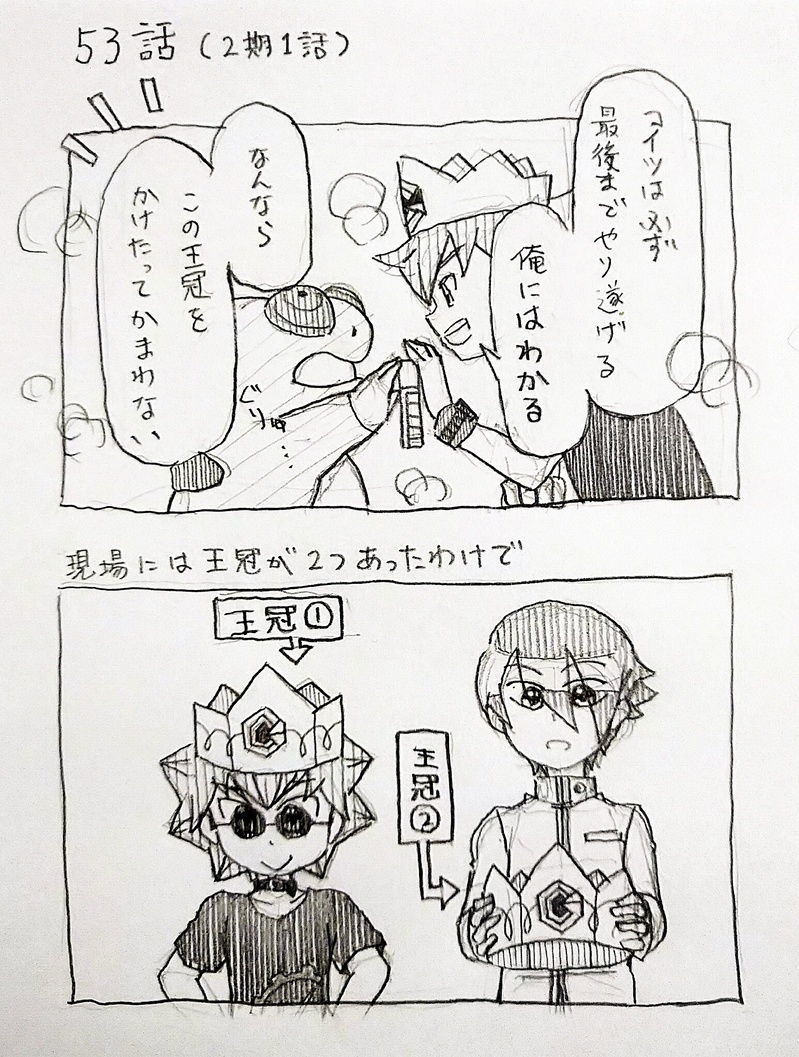 53話(2期1話)
コイツは必ず
最後までやり遂げる
俺にはわかる
なんなら
この王冠を
かけたってかまわない
ぐりゅ…
現場には王冠が2つあったわけで
王冠①
王冠②